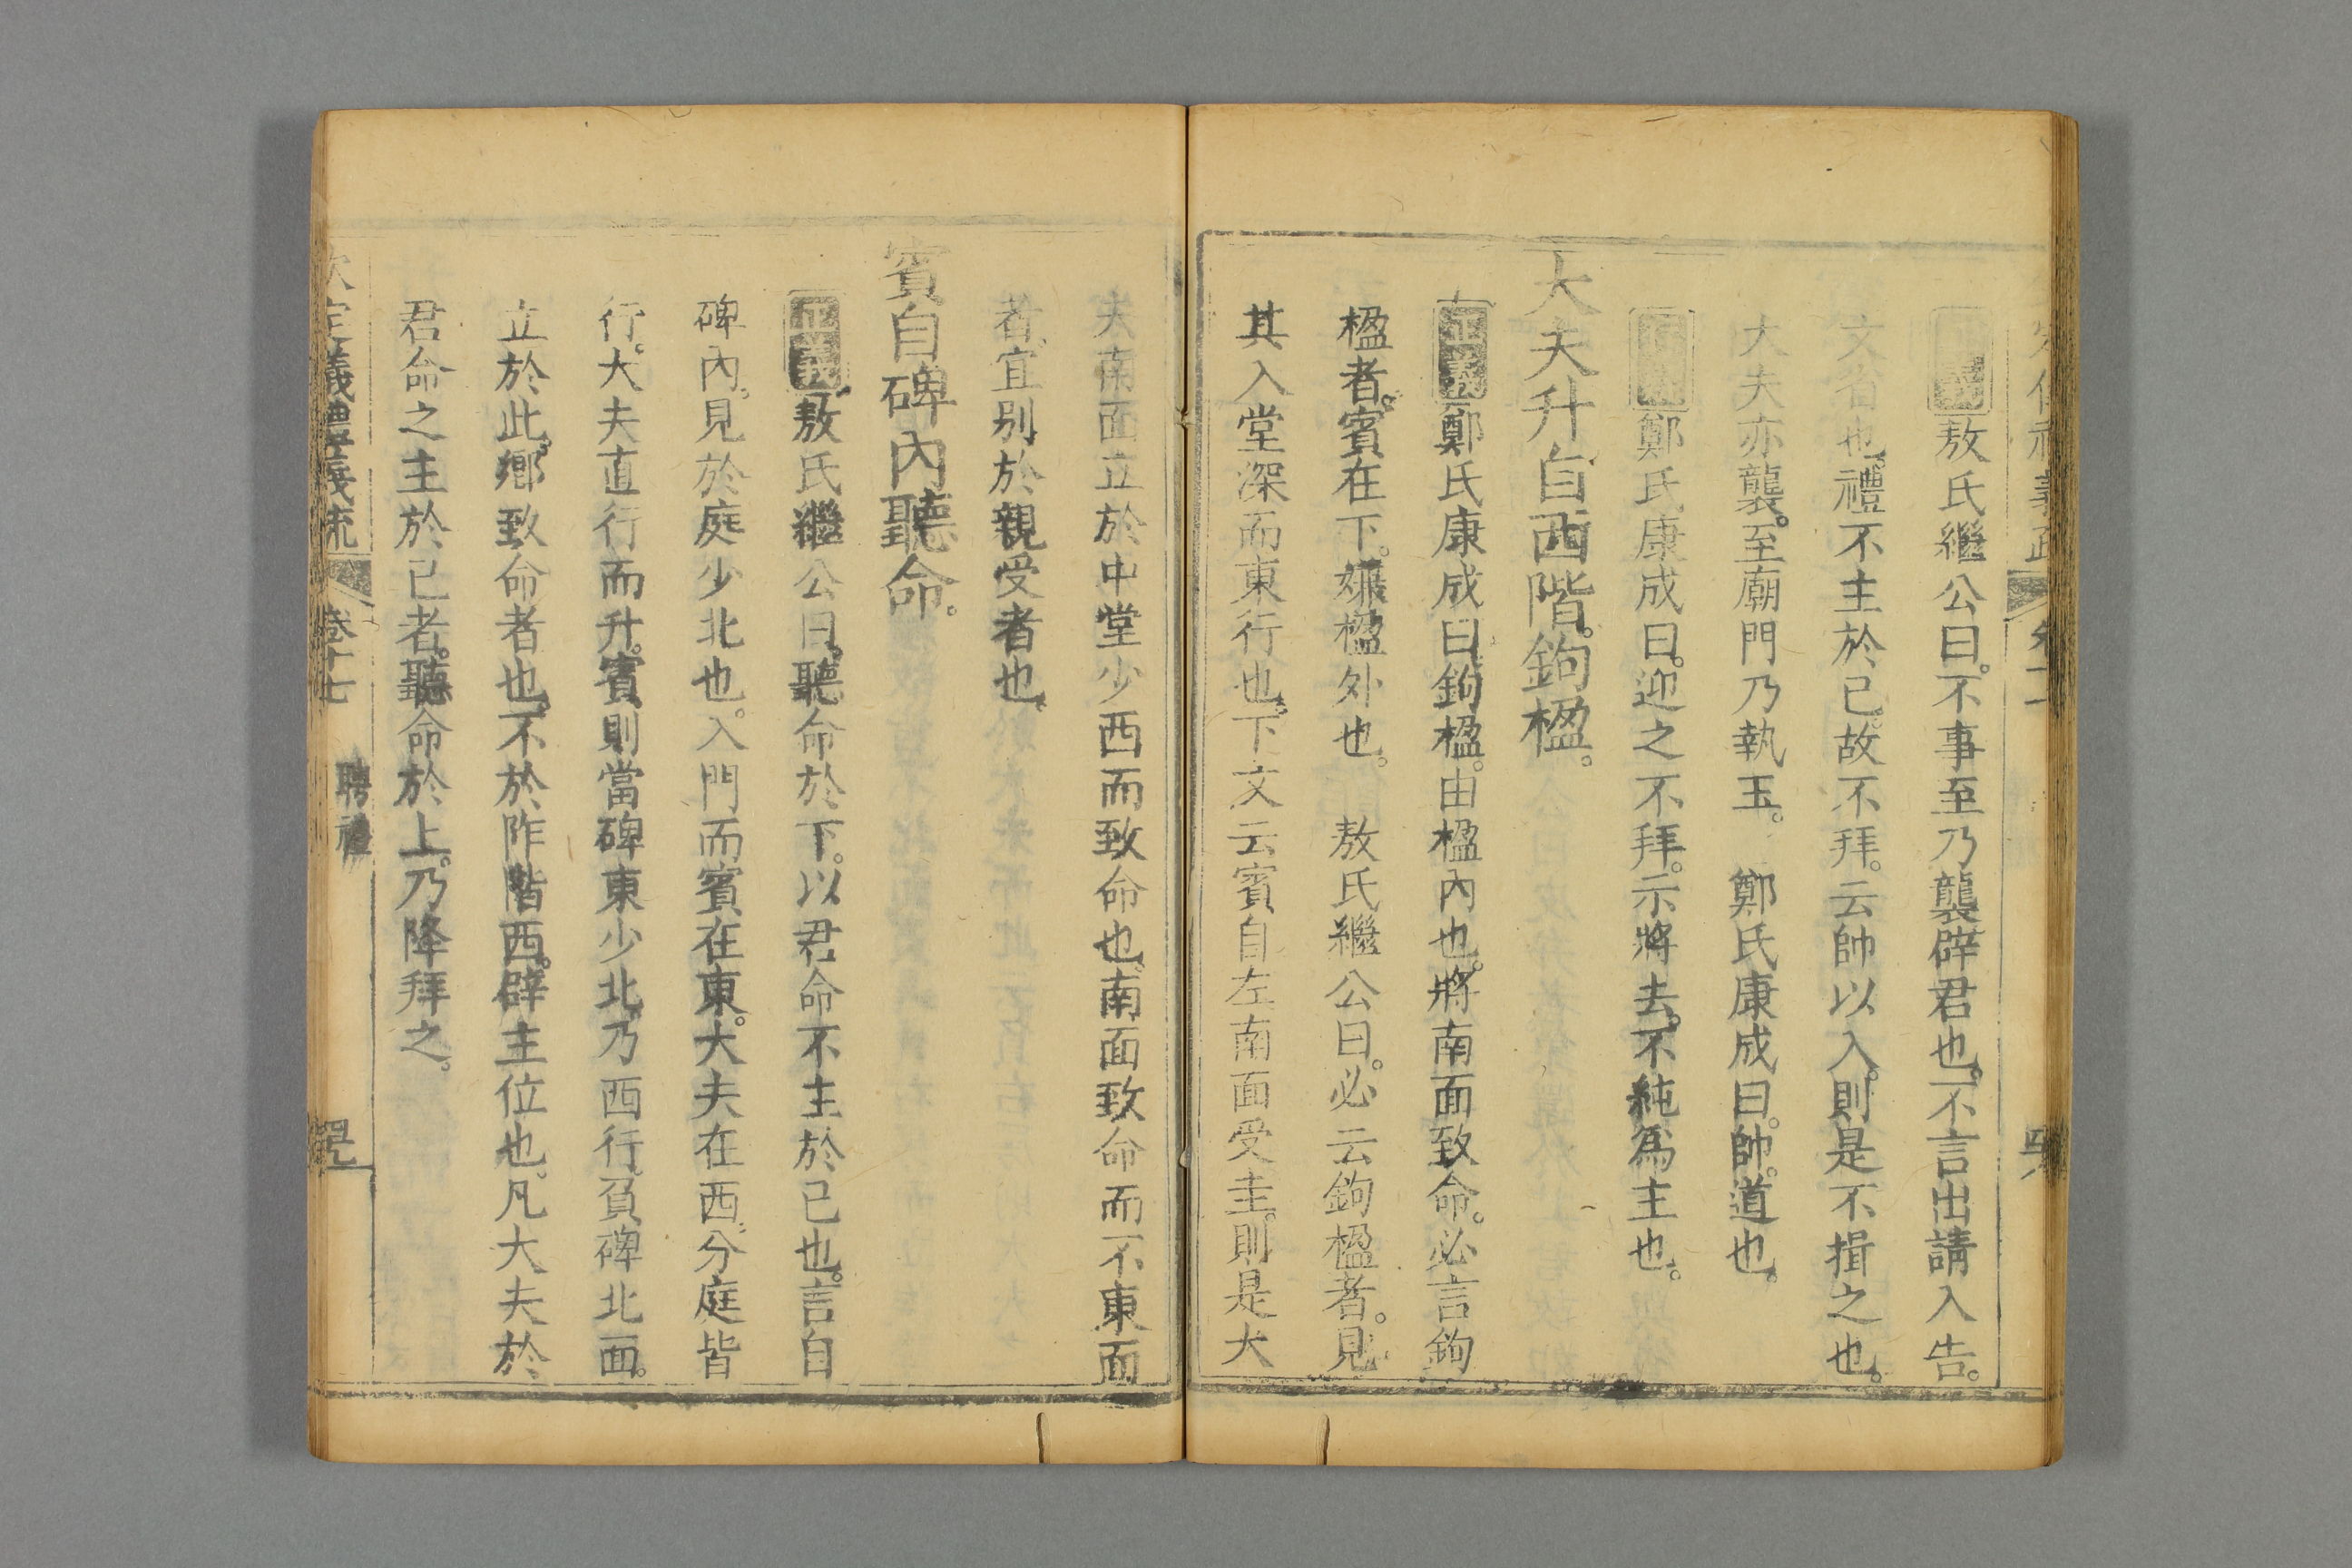 正義敖氏繼公曰。不事至乃襲辟君也。不言出請入告。
文省也。禮不主於己。故不拜。云帥以入。則是不揖之也。
大夫亦襲。至廟門乃執玉。 鄭氏康成曰。帥。道也。
鄭氏康成曰。迎之不拜。示將去。不純爲主也。
大夫升自西階。鉤楹。
正義鄭氏康成曰。鉤楹。由楹內也。將南面致命。必言鉤
楹者。賓在下。嫌楹外也。 敖氏繼公曰。必云鉤楹者。見
其入堂深而東行也。下文云賓自左南面受圭。則是大
夫南面立於中堂少西而致命也。南面致命而不東面
者。宜别於親受者也。
賓自碑內聽命。
正義敖氏繼公曰。聽命於下。以君命不主於己也。言自
碑內。見於庭少北也。入門而賓在東。大夫在西。分庭皆
行。大夫直行而升。賓則當碑東少北。乃西行。負碑北面。
立於此。鄉致命者也。不於阼階西。辟主位也。凡大夫於
君命之主於己者。聽命於上。乃降拜之。
欽定儀禮義疏 卷十七 聘禮